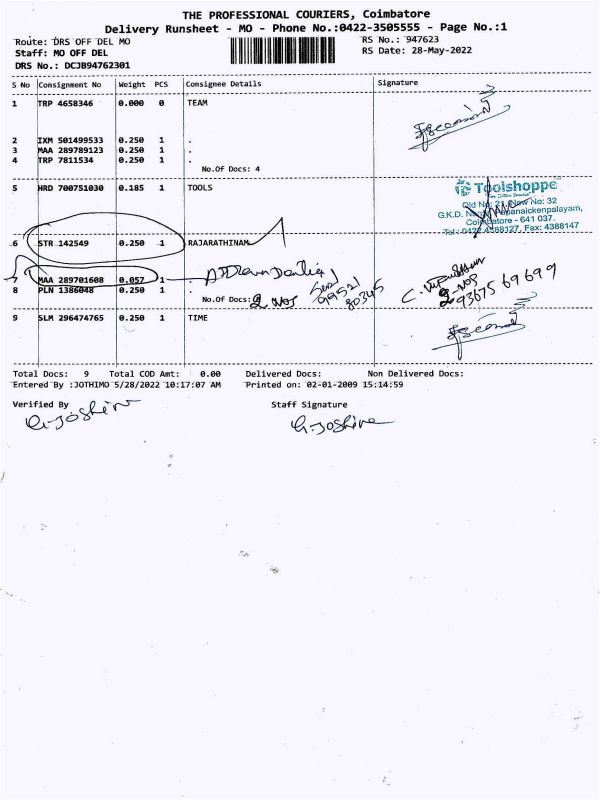 THE PROFESSIONAL COURIERS, Coimbatore
Delivery Runsheet - MO - Phone No.:0422-3505555 - Page No.:1
Route: DRS OFF DEL MO
Staff: MO OFF DEL
DRS No.: DCJB94762301
RS No.: 947623
RS Date: 28-May-2022
S No Consignment No Weight PCS Consignee Details Signature
1 TRP 4658346 0.000 0 TEAM
2 IXM 501499533 0.250 1 .
3 MAA 289789123 0.250 1 .
4 TRP 7811534 0.250 1 .
No.Of Docs: 4
5 HRD 700751030 0.185 1 TOOLS
Toolshoppe
Old No: 21, New No: 32
G.K.D. Naickenpalayam,
Coimbatore - 641 037.
Tel: 0422 4388127, Fax: 4388147
6 STR 142549 0.250 1 RAJARATHINAM
7 MAA 289701608 0.057 1 .
8 PLN 1386048 0.250 1 .
No.Of Docs: 2 Nos
99521
80345
2-Nos
93675 69699
9 SLM 296474765 0.250 1 TIME
Total Docs: 9 Total COD Amt: 0.00 Delivered Docs: Non Delivered Docs:
Entered By :JOTHIMO 5/28/2022 10:17:07 AM Printed on: 02-01-2009 15:14:59
Verified By Staff Signature
G-Joshine G-Joshine